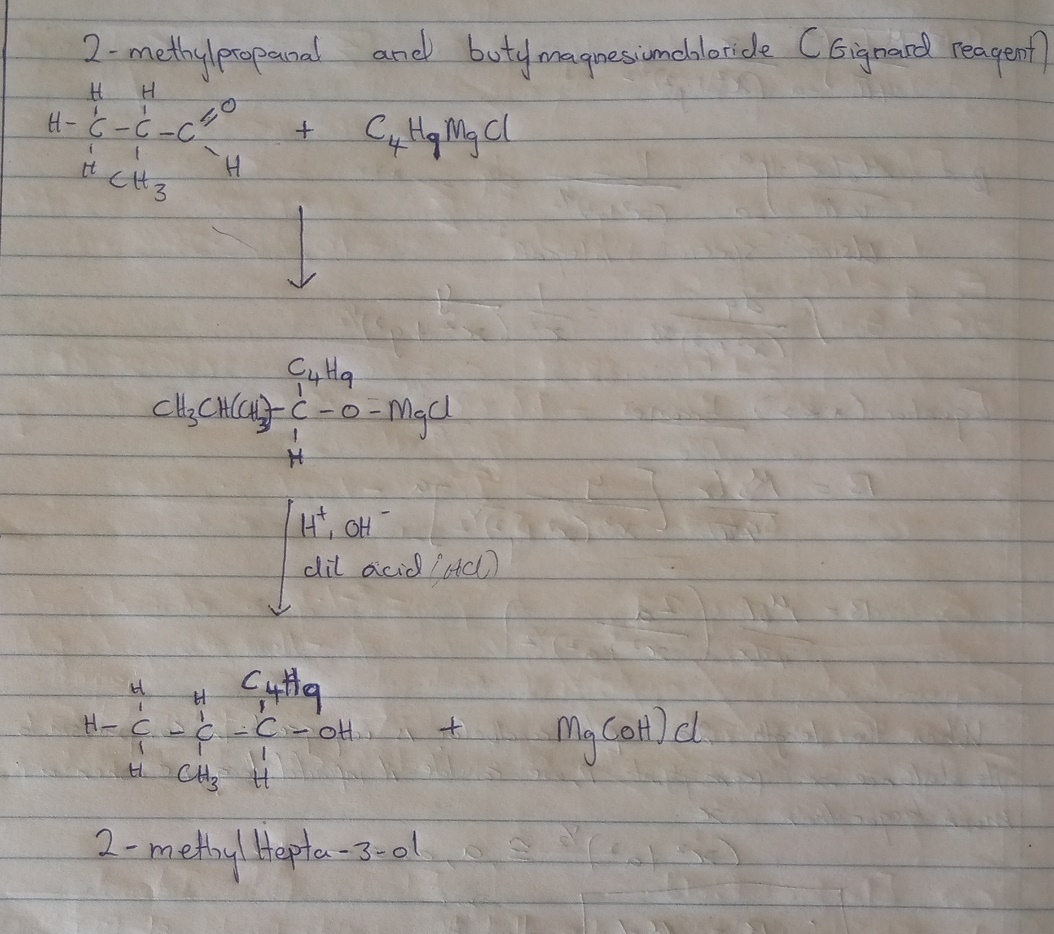 2-methylpropanal and butymagnesiumchloride (Gignard reagent)
H H
H - C - C - C = O + C4H9MgCl
H CH3 H
C4H9
CH3CH(CH3)- C - O - MgCl
H
H+, OH-
dil acid (HCl)
H H C4H9
H - C - C - C - OH + Mg(OH)Cl
H CH3 H
2-methylHepta-3-ol